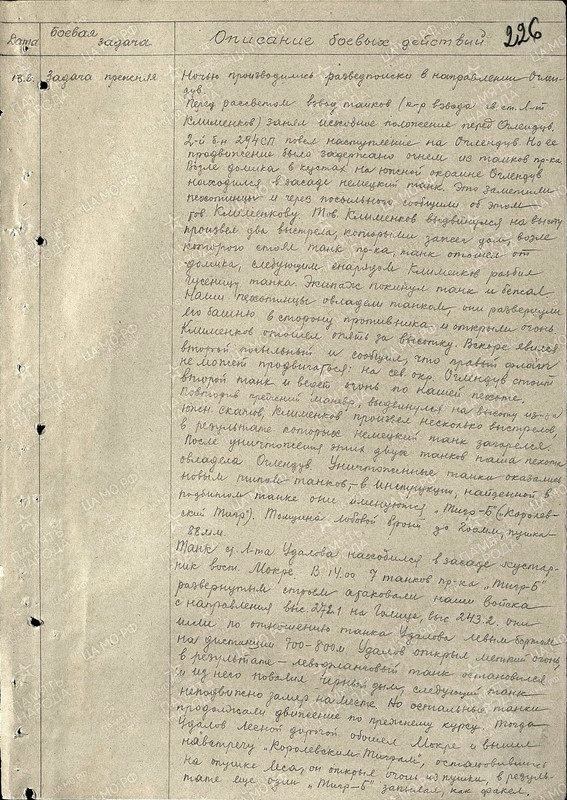 226
Дата
боевая задача
Описание боевых действий
13.8. Задача прежняя
Ночью производились разведпоиски в направлении Оглен-
дув.
Перед рассветом взвод танков (к-р взвода гв. ст. л-т
Клименков) занял исходное положение перед Оглендув.
2-й б-н 294 СП повел наступление на Оглендув. Но ее
продвижение было задержано огнем из танков пр-ка.
Возле домика в кустах на южной окраине Оглендув
находился в засаде немецкий танк. Это заметили
пехотинцы и через посыльного сообщили об этом
тов. Клименкову. Тов. Клименков выдвинулся на высоту
произвел два выстрела, которыми зажег дом, возле
которого стоял танк пр-ка, танк отошел от
домика, следующим снарядом Клименков разбил
гусеницу танка. Экипаж покинул танк и бежал.
Наши пехотинцы овладели танком, они развернули
его башню в сторону противника и открыли огонь.
Клименков отошел опять за высотку. Вскоре явился
второй посыльный и сообщил, что правый фланг
не может продвигаться: на сев. окр. Оглендув стоит
второй танк и ведет огонь по нашей пехоте.
Повторив прежний маневр, выдвинулся на высоту из-за
южн. скатов, Клименков произвел несколько выстрелов,
в результате которых немецкий танк загорелся.
После уничтожения этих двух танков наша пехота
овладела Оглендув. Уничтоженные танки оказались
новым типом танков, - в инструкции, найденной в
подбитом танке они именуются „Тигр-Б" („Королев-
ский Тигр"). Толщина лобовой брони до 200мм, пушка -
88мм.
Танк мл. л-та Удалова находился в засаде кустар-
ник вост. Мокре. В 14.00 7 танков пр-ка „Тигр-Б"
развернутым строем атаковали наши войска
с направления выс 242.1 наГолице, выс 243.2. они
шли по отношению танка Удалова левым бортом
на дистанции 700-800м Удалов открыл меткий огонь
в результате - левофланговый танк остановился
и из него повалил черный дым, следующий танк
неподвижно замер на месте. Но остальные танки
продолжали движение по прежнему курсу. Тогда
Удалов лесной дорогой обошел Мокре и вышел
навстречу „Королевским Тиграм", остановившись
на опушке леса, он открыл огонь из пушки, в резуль-
тате еще один „Тигр-Б" запылал, как факел.
ЦАМО.РФ